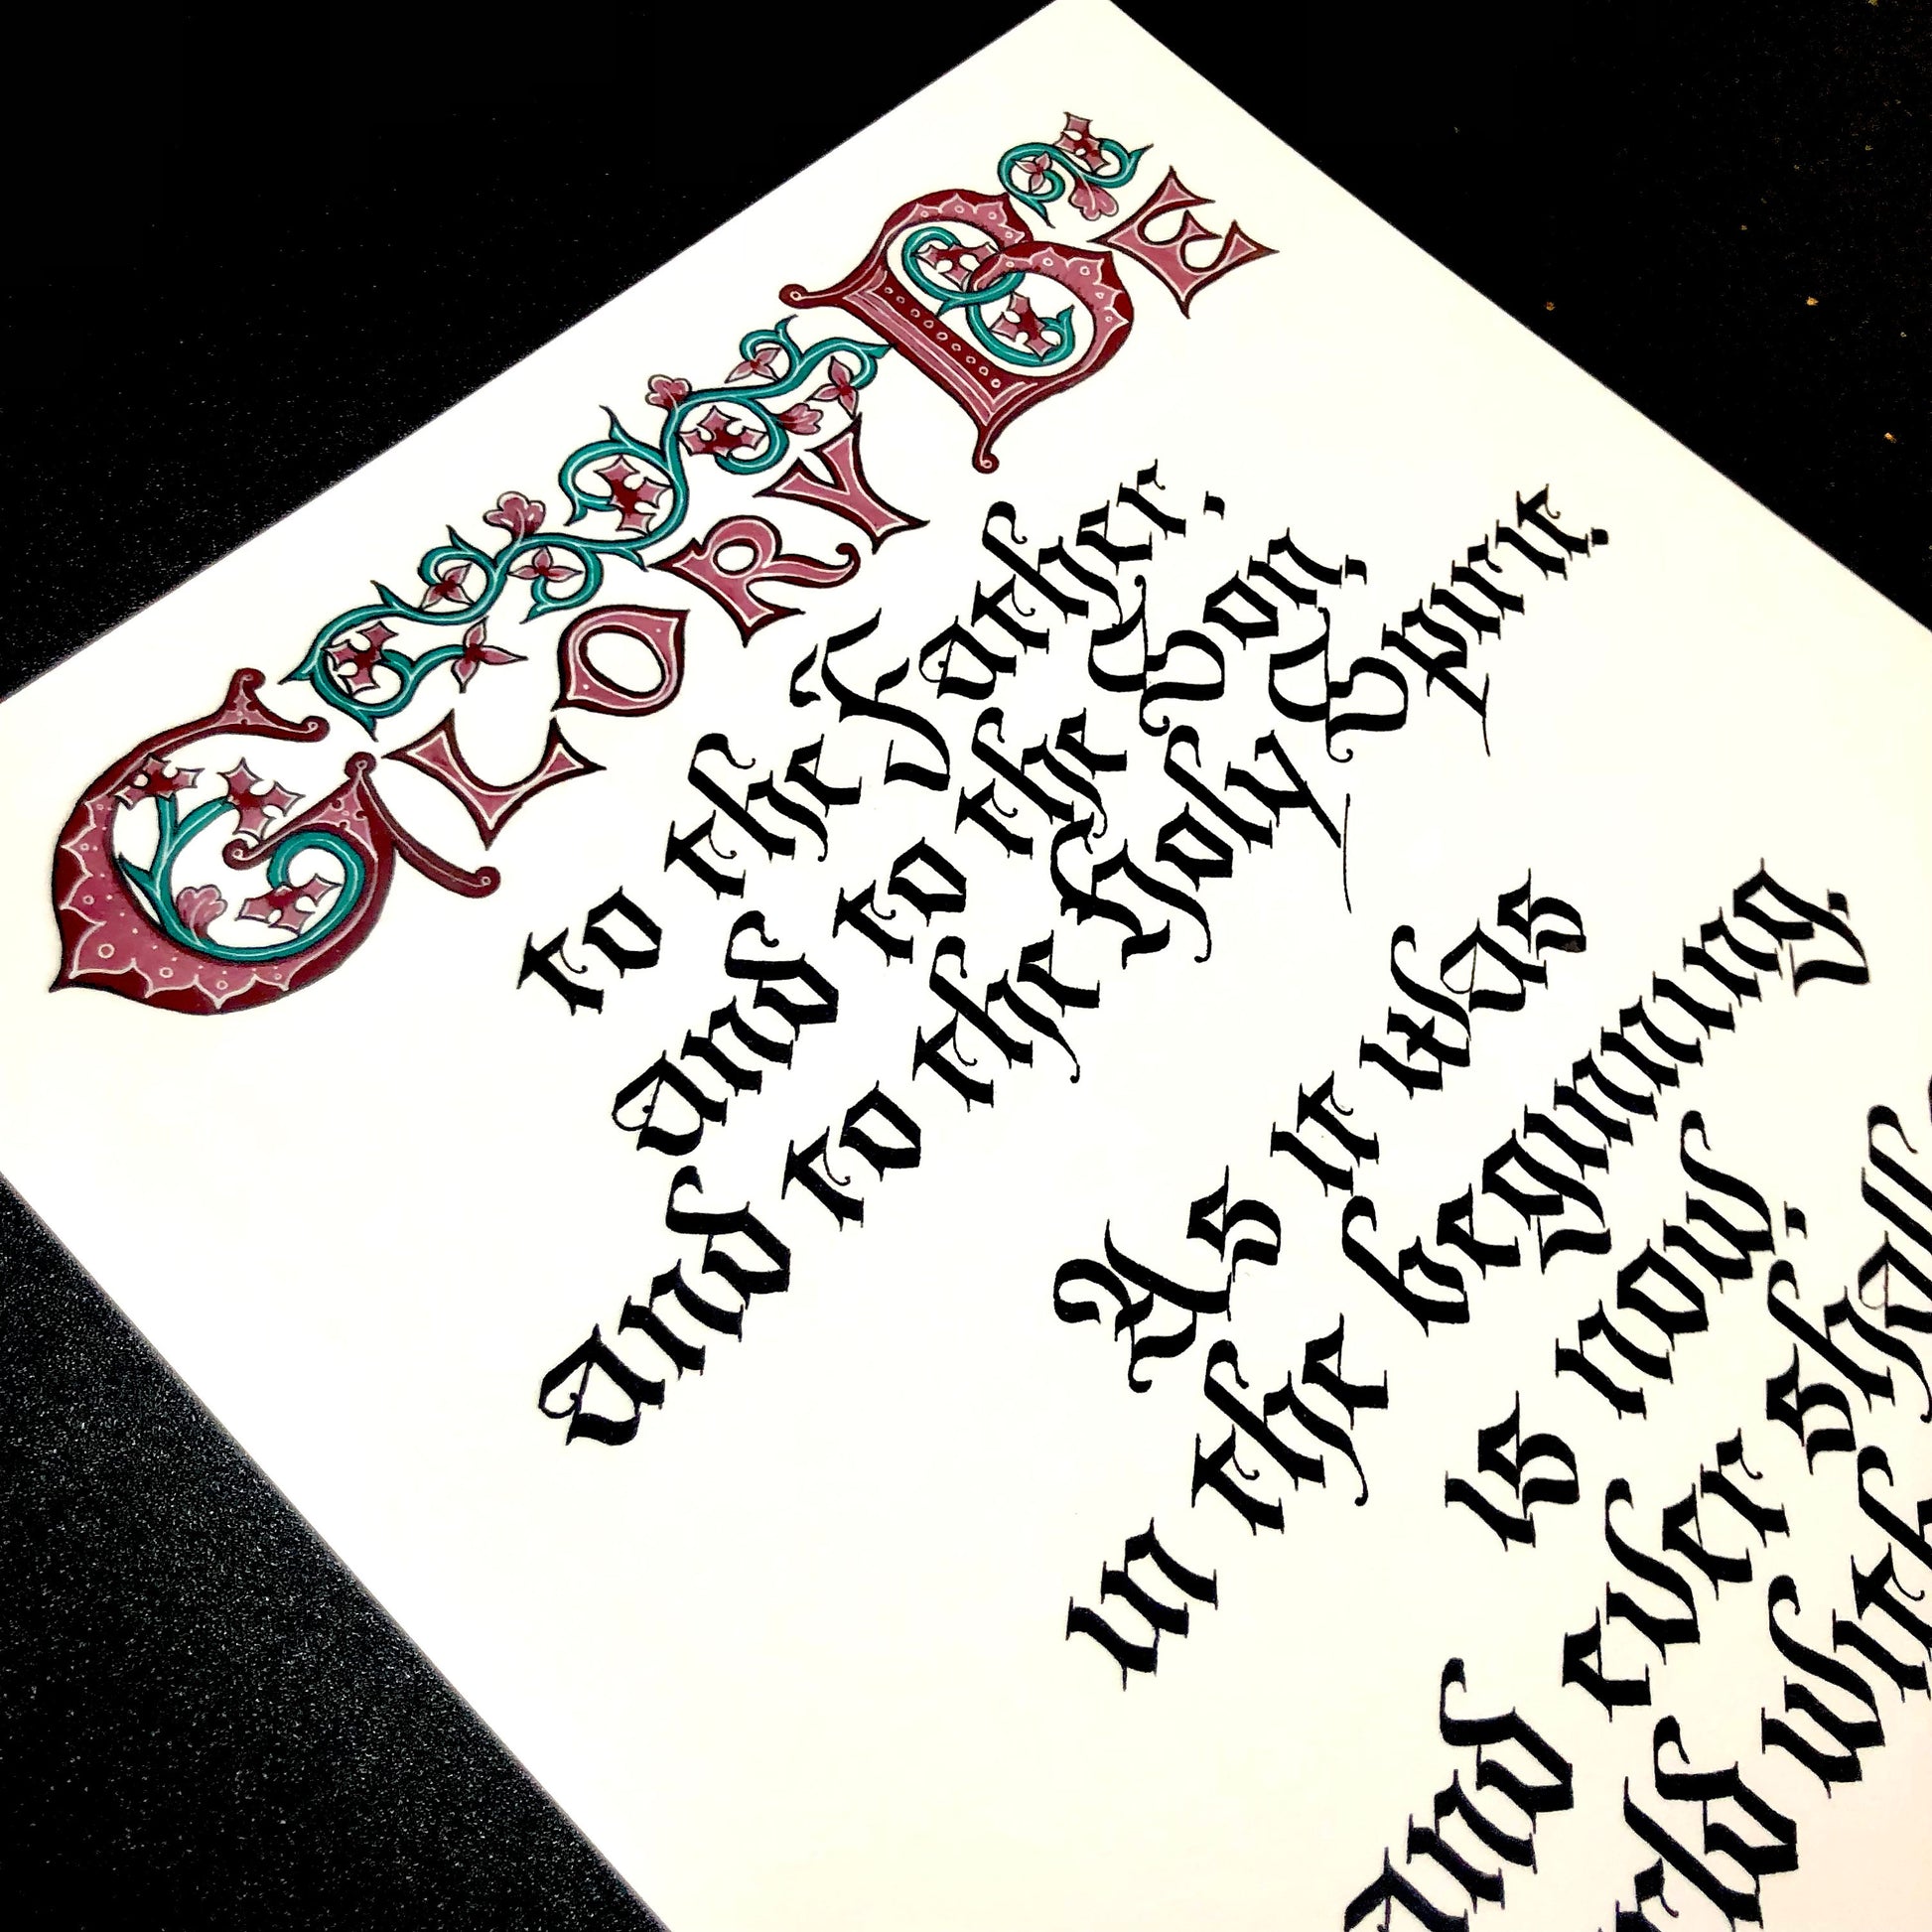 GLORY BE
to the Father,
and to the Son,
and to the Holy Spirit.
As it was
in the beginning,
is now,
and ever shall
with